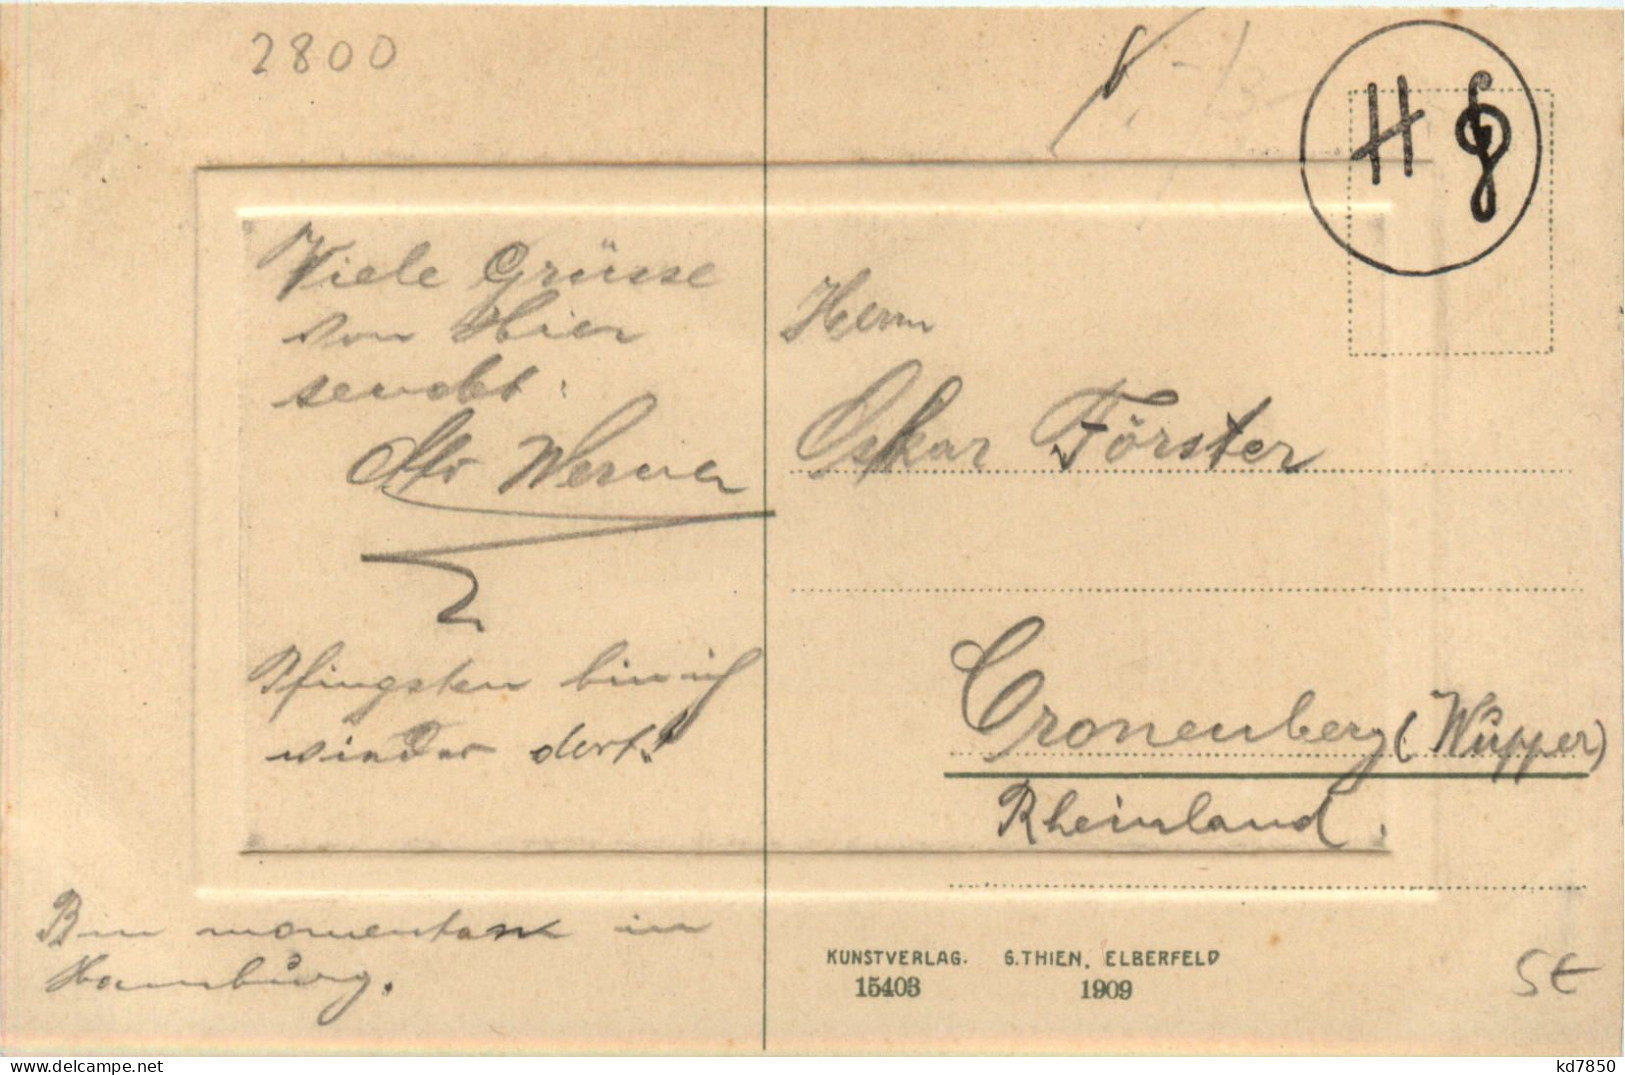 2800
H
Viele Grüsse
von Hier
sendet:
Otto Werner
Pfingsten bin ich
wieder dort!
Bin momentan in
Hamburg.
Herrn
Oskar Förster
Cronenberg (Wupper)
Rheinland.
KUNSTVERLAG. G. THIEN, ELBERFELD
15403 1909
5€
delcampe.net
kd7850